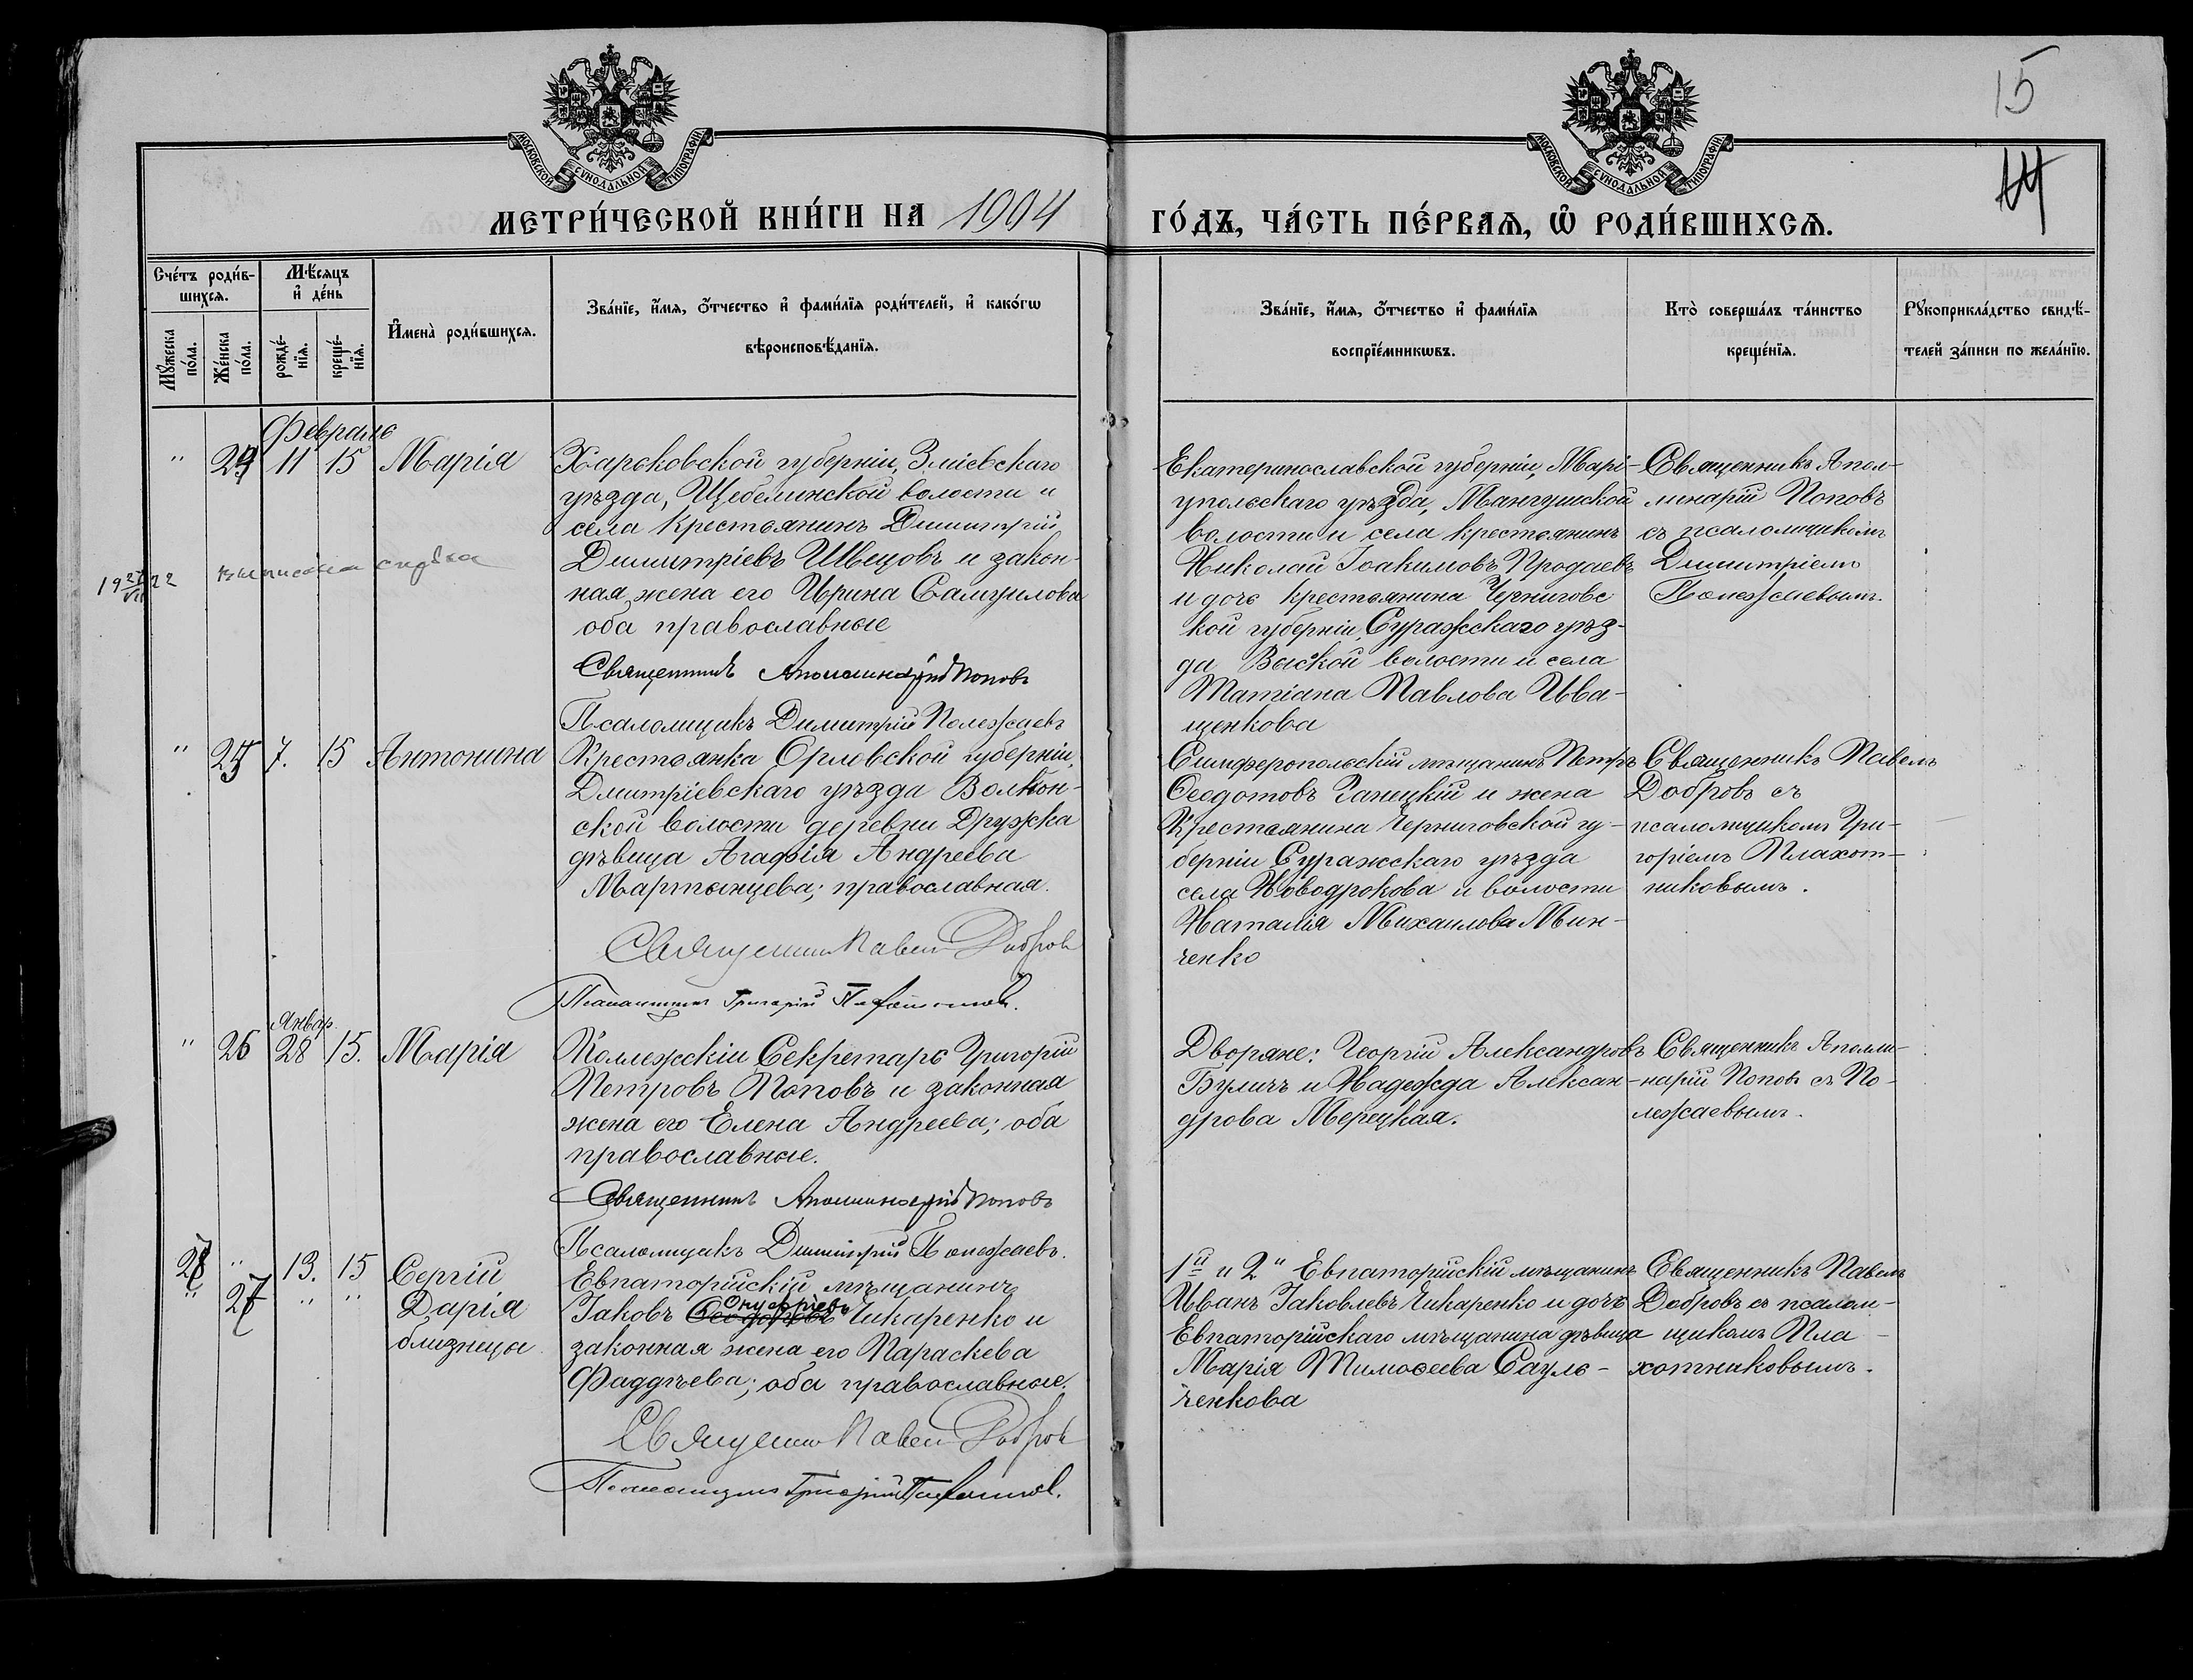 15
14
МОСКОВСКОЙ СѴНОДАЛЬНОЙ ТИПОГРАФІИ
МОСКОВСКОЙ СѴНОДАЛЬНОЙ ТИПОГРАФІИ
МЕТРИ́ЧЕСКОЙ КНИ́ГИ НА 1904
ГО́ДЪ, ЧА́СТЬ ПЕ́РВАѦ, Ѡ҆ РОДИ́ВШИХСѦ.
Сче́тъ роди́в-
шихсѧ.
Мꙋ́жеска по́ла.
Же́нска по́ла.
Мѣ́сѧцъ
и҆ де́нь
рожде́-
нїѧ.
креще́-
нїѧ.
И҆мена̀ роди́вшихсѧ.
Зва́нїе, и҆́мѧ, ѻ҆́тчество и҆ фами́лїѧ роди́телей, и҆ како́гѡ
вѣроисповѣ́данїѧ.
Зва́нїе, и҆́мѧ, ѻ҆́тчество и҆ фами́лїѧ
воспрїе́мникѡвъ.
Кто̀ соверша́лъ та́инство
креще́нїѧ.
Рꙋкоприкла́дство свидѣ́-
телей за́писи по жела́нїю.
Февраль
" 24 11 15 Марія
Харьковской губерніи, Зміевскаго
уѣзда, Щебелинской волости и
села крестьянинъ Димитрій
Димитріевъ Швецовъ и закон-
ная жена его Ирина Самуилова
оба православные
Священникъ Аполлинарій Поповъ
Псаломщикъ Димитрій Полежаевъ
Екатеринославской губерніи, Марі-
упольскаго уѣзда, Мангушской
волости и села крестьянинъ
Николай Іоакимовъ Продаевъ
и дочь крестьянина Черниговс
кой губерніи, Суражскаго уѣз-
да Выской волости и села
Татіана Павлова Ива-
щенкова
Священникъ Апол-
линарій Поповъ
съ псаломщикомъ
Димитріемъ
Полежаевымъ.
1922
выписана справка
" 25 7. 15 Антонина
Крестьянка Орловской губерніи,
Дмитріевскаго уѣзда Волкон-
ской волости деревни Дружка
дѣвица Агафія Андреева
Мартынцева; православная.
Священникъ Павелъ Добровъ
Псаломщикъ Григорій Плахотниковъ.
Симферопольскій мѣщанинъ Петръ
Ѳеодотовъ Ганецкій и жена
Крестьянина Черниговской гу-
берніи Суражскаго уѣзда
села Новодрокова и волости
Наталія Михаилова Мин-
ченко
Священникъ Павелъ
Добровъ съ
псаломщикомъ Гри-
горіемъ Плахот-
никовымъ.
Январ.
" 26 28 15. Марія
Коллежскій Секретарь Григорій
Петровъ Поповъ и законная
жена его Елена Андреева; оба
православные.
Священникъ Аполлинарій Поповъ
Псаломщикъ Димитрій Полежаевъ.
Дворяне: Георгій Александровъ
Буличъ и Надежда Алексан-
дрова Мерецкая.
Священникъ Аполли-
нарій Поповъ съ По-
лежаевымъ.
27 " 13. 15 Сергій
" 27 " " Дарія
близнецы
Евпаторійскій мѣщанинъ
Онуфріевъ
Іаковъ Ѳеодоровъ Чикаренко и
законная жена его Параскева
Фаддѣева; оба православные.
Священникъ Павелъ Добровъ
Псаломщикъ Григорій Плахотниковъ.
1й и 2" Евпаторійскій мѣщанинъ
Иванъ Іаковлевъ Чикаренко и дочь
Евпаторійскаго мѣщанина дѣвица
Марія Тимоѳеева Сауль-
ченкова
Священникъ Павелъ
Добровъ съ псалом-
щикомъ Пла-
хотниковымъ.